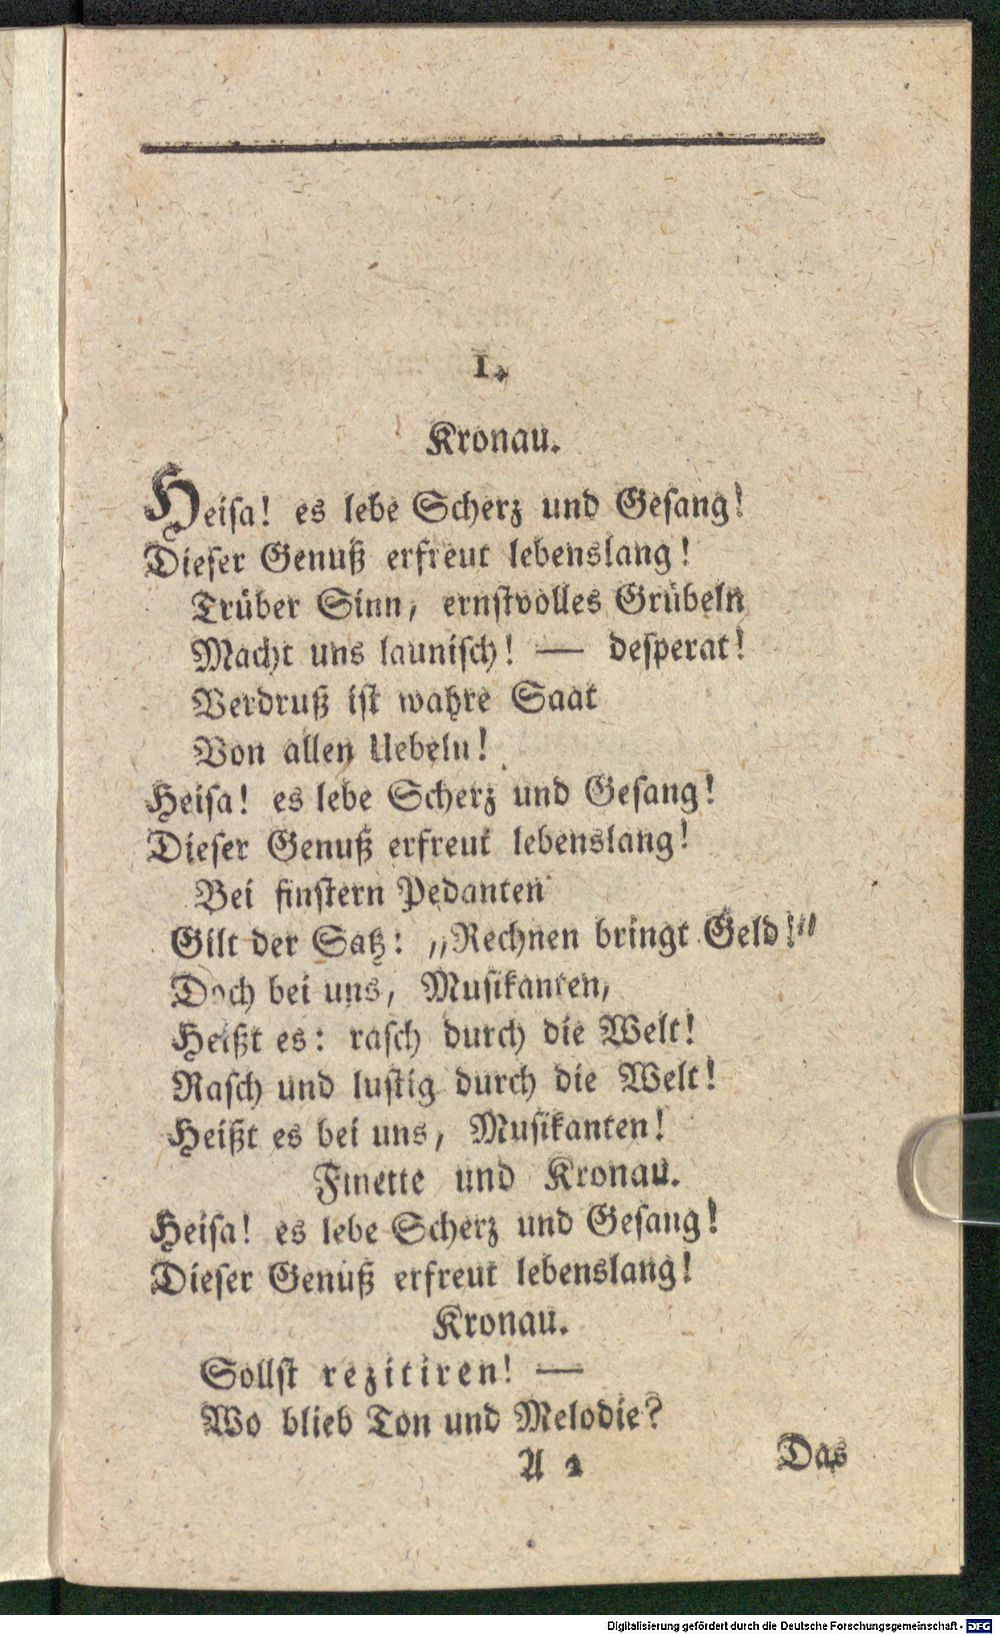 1.
Kronau.
Heisa! es lebe Scherz und Gesang!
Dieser Genuß erfreut lebenslang!
Trüber Sinn, ernstvolles Grübeln
Macht uns launisch! — desperat!
Verdruß ist wahre Saat
Von allen Uebeln!
Heisa! es lebe Scherz und Gesang!
Dieser Genuß erfreut lebenslang!
Bei finstern Pedanten
Gilt der Satz: „Rechnen bringt Geld!"
Doch bei uns, Musikanten,
Heißt es: rasch durch die Welt!
Rasch und lustig durch die Welt!
Heißt es bei uns, Musikanten!
Finette und Kronau.
Heisa! es lebe Scherz und Gesang!
Dieser Genuß erfreut lebenslang!
Kronau.
Sollst rezitiren! —
Wo blieb Ton und Melodie?
A 2 Das
Digitalisierung gefördert durch die Deutsche Forschungsgemeinschaft - DFG